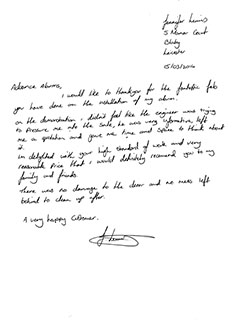 Jennifer Lewis
5 Manor Court
Blaby
Leicester
15/03/2016
Advance Alarms,
I would like to thankyou for the fantastic job
you have done on the installation of my alarm.
on the demonstration i didnt feel like the engineer was trying
to pressure me into the sale, he was very informative, left
me a quotation and gave me time and space to think about
it.
Im delighted with your high standard of work and very
reasonable price that i would definitely recommend you to my
family and friends.
There was no damage to the decor and no mess left
behind to clean up after.
A very happy customer.